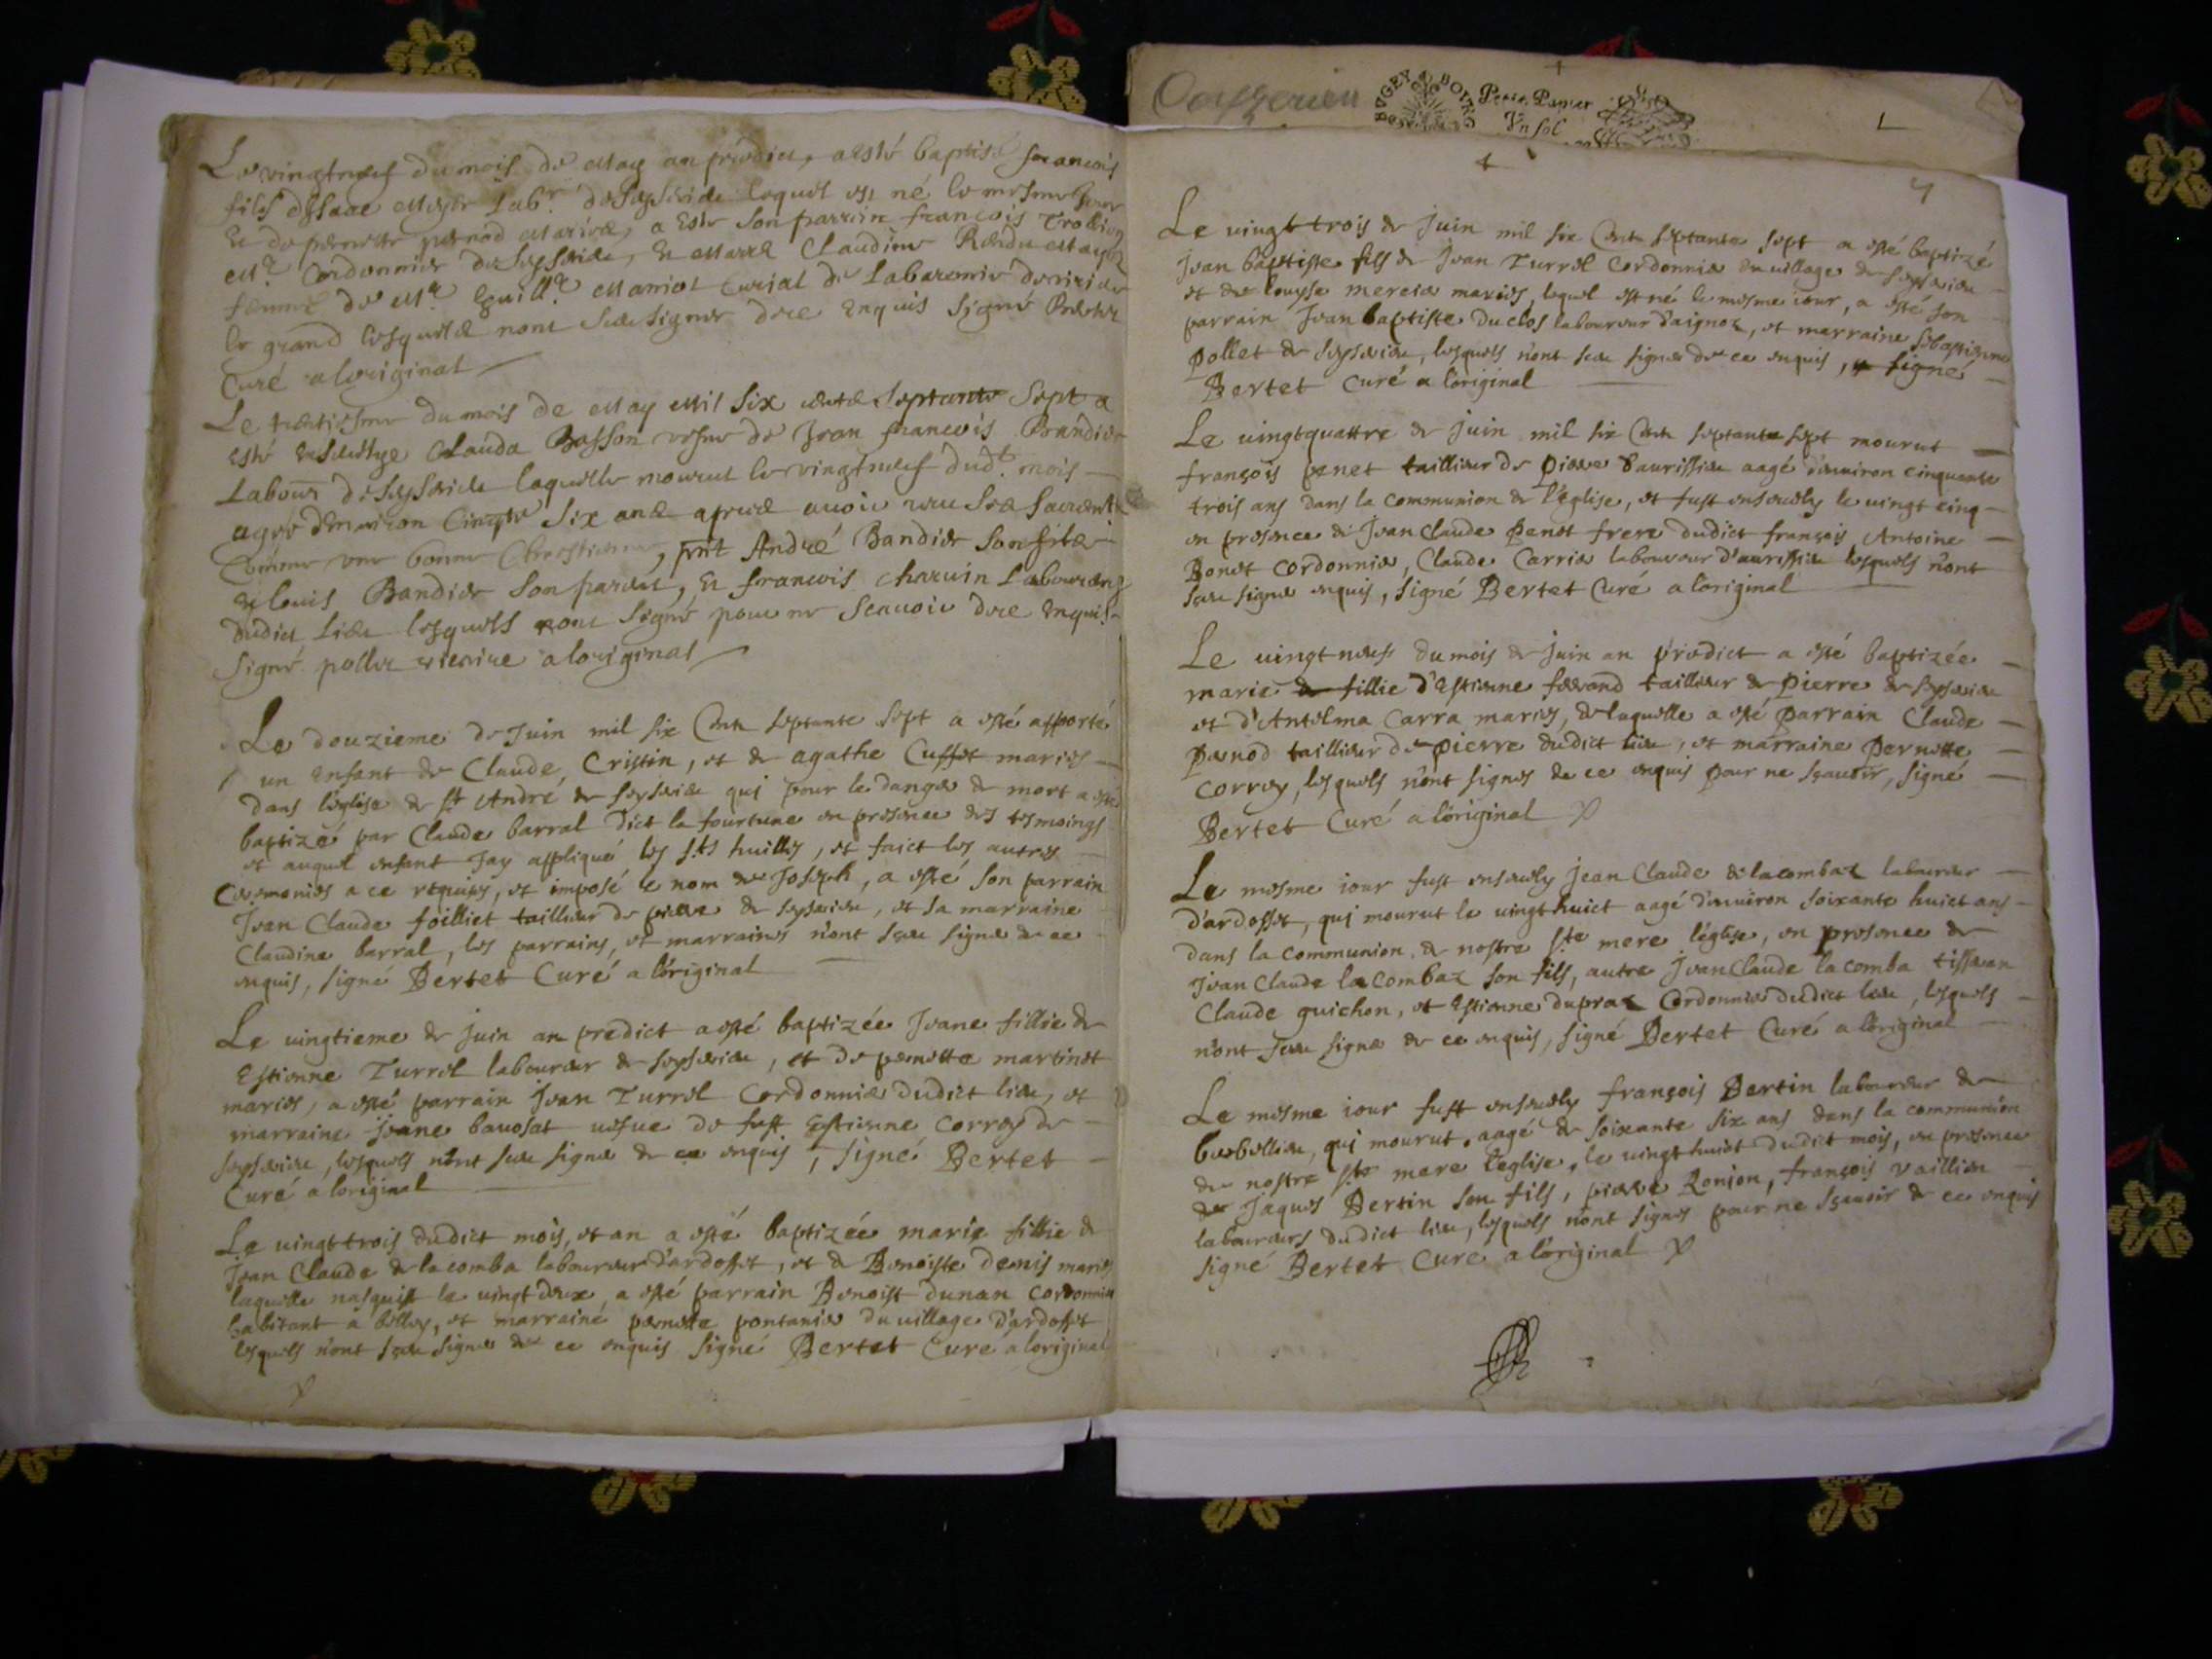 Le vingtneuf du mois de May an prédict, a esté baptisé francois
fils d'Isaac Labr. de Seysserieu lequel est né le mesme jour
Et de pernette pernod mariez, a esté son parrain françois Trollion
Mr. Cordonnier de Seysserieu, Et Marre Claudine
femme de Mr. curial de
le grand lesquels nont sceu signer de ce enquis signé Bertet
Curé a loriginal
Le trentiesme du mois de May Mil six cents septante sept a
esté Clauda Basson vefve de Jean francois Bandier
Labour. de Seysserieu laquelle mourut le vingtneuf dud. mois
agee denviron Cinqte six ans apres avoir receu ses sacrements
Comme une bonne Chrestienne, pnt André Bandier son fils
Et louis Bandier son parent, Et francois charvin Laboureurs
dudict lieu lesquels nont signé pour ne scavoir de ce enquis
signé pollet vicaire a loriginal
Le douzieme de Juin mil six Cents septante sept a esté apporté
un Enfant de Claude Cristin, et de agathe Cuffet mariés
dans l'eglise de St André de seyserieu qui pour le danger de mort a esté
baptizé par Claude barral dict la fourtune en presence des tesmoings
et auquel enfant Jay appliqué les sts huilles, et faict les autres
Ceremonies a ce requises, et imposé le nom de Joseph, a esté son parrain
Jean Claude foilliet tailleur de pierre de seyserieu, et sa marraine
Claudine barral, les parrains, et marraines n'ont sceu signer de ce
enquis, signé Bertet Curé a l'original
Le vingtieme de juin an predict a esté baptizée Jeane fillie de
Estienne Turrel laboureur de seyserieu, et de pernette martinet
mariés, a esté parrain Jean Turrel Cordonnier dudict lieu, et
marraine jeane bavosat vefve de fust Estienne Correy de
seyserieu, lesquels n'ont sceu signer de ce enquis, signé Bertet
Curé a loriginal
Le vingt trois dudict mois, et an a esté baptizée marie fillie de
Jean Claude de lacomba laboureur d'ardosset, et de Benoiste denis mariés
laquelle nasquist le vingt deux, a esté parrain Benoist dunan Cordonnier
habitant a belley, et marraine pernette pontanier du village d'ardosset
lesquels n'ont sceu signer de ce enquis signé Bertet Curé a loriginal
BUGEY
Petit Papier
Un sol
4
7
Le vingt trois de juin mil six Cents septante sept a esté baptizé
Jean baptiste fils de Jean Turrel Cordonnier du village de seyserieu
et de louyse mercier mariés, lequel est né le mesme iour, a esté son
parrain Jean baptiste duclos laboureur d'aignoz, et marraine sebastienne
pollet de seyserieu, lesquels n'ont sceu signer de ce enquis, signé
Bertet Curé a l'original
Le vingtquattre de juin mil six Cents septante sept mourut
françois penet tailleur de pierre d'aurissieu aagé d'environ cinquante
trois ans dans la communion de l'église, et fust ensevely le vingt cinq
en presence de Jean Claude Penet frere dudict françois, Antoine
Bonet cordonnier, Claude Carrier laboureur d'aurissieu lesquels n'ont
sceu signer enquis, signé Bertet Curé a l'original
Le vingt neuf du mois de juin an predict a esté baptizée
marie de fillie d'Estienne ferrand tailleur de pierre de seyserieu
et d'Antelma Carra mariés, de laquelle a esté parrain Claude
pernod tailleur de pierre dudict lieu, et marraine Pernette
correy, lesquels n'ont signés de ce enquis pour ne sçavoir, signé
Bertet Curé a l'original
Le mesme iour fust ensevely jean Claude de lacombaz laboureur
d'ardosset, qui mourut le vingt huict aagé d'environ soixante huict ans
dans la communion de nostre ste mere l'église, en presence de
Jean Claude lacombaz son fils, autre Jean Claude lacomba tisseran
Claude guichon, et Estienne dupraz Cordonnier dudict lieu, lesquels
n'ont sceu signer de ce enquis, signé Bertet Curé a l'original
Le mesme iour fust ensevely françois Bertin laboureur de
berbellieu, qui mourut, aagé de soixante six ans dans la communion
de nostre ste mere l'eglise, le vingt huict dudict mois, en presence
de Jaques Bertin son fils, pierre Ronjon, françois vaillien
laboureurs dudict lieu, lesquels n'ont signes pour ne sçavoir de ce enquis
signé Bertet Cure a l'original